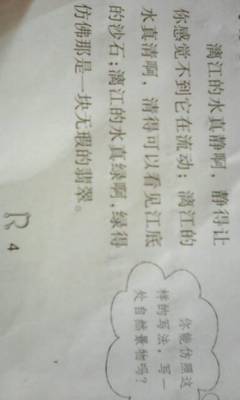 漓江的水真静啊，静得让
你感觉不到它在流动；漓江的
水真清啊，清得可以看见江底
的沙石；漓江的水真绿啊，绿得
仿佛那是一块无瑕的翡翠。
你能仿照这
样的写法，写一
处自然景物吗？
4